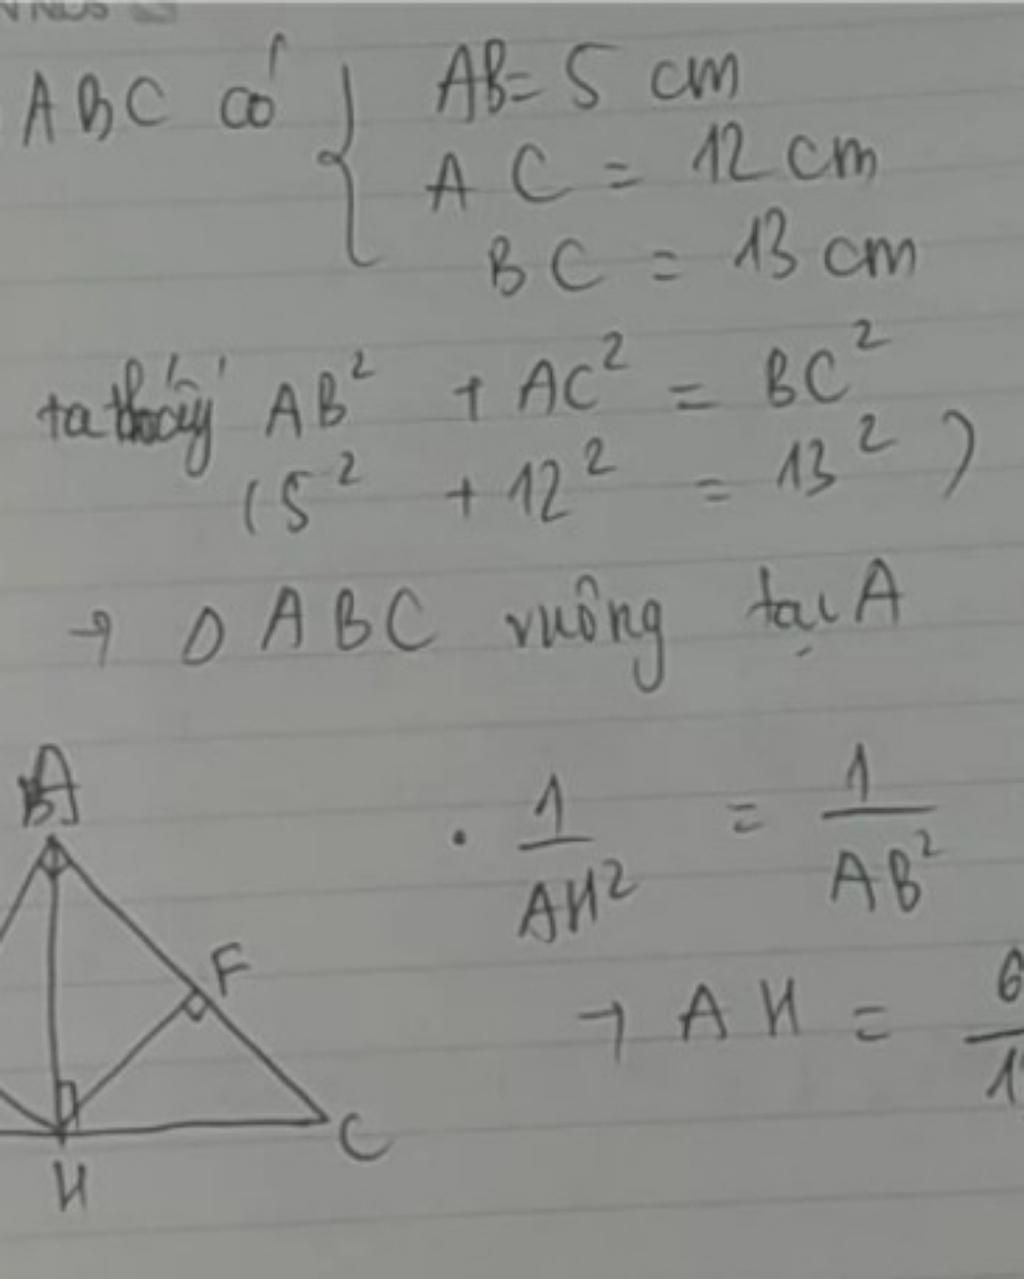 ABC có { AB = 5 cm
AC = 12 cm
BC = 13 cm
ta thấy AB² + AC² = BC²
(5² + 12² = 13²)
→ Δ ABC vuông tại A
A
· 1/AH² = 1/AB²
F
→ AH =
C
H